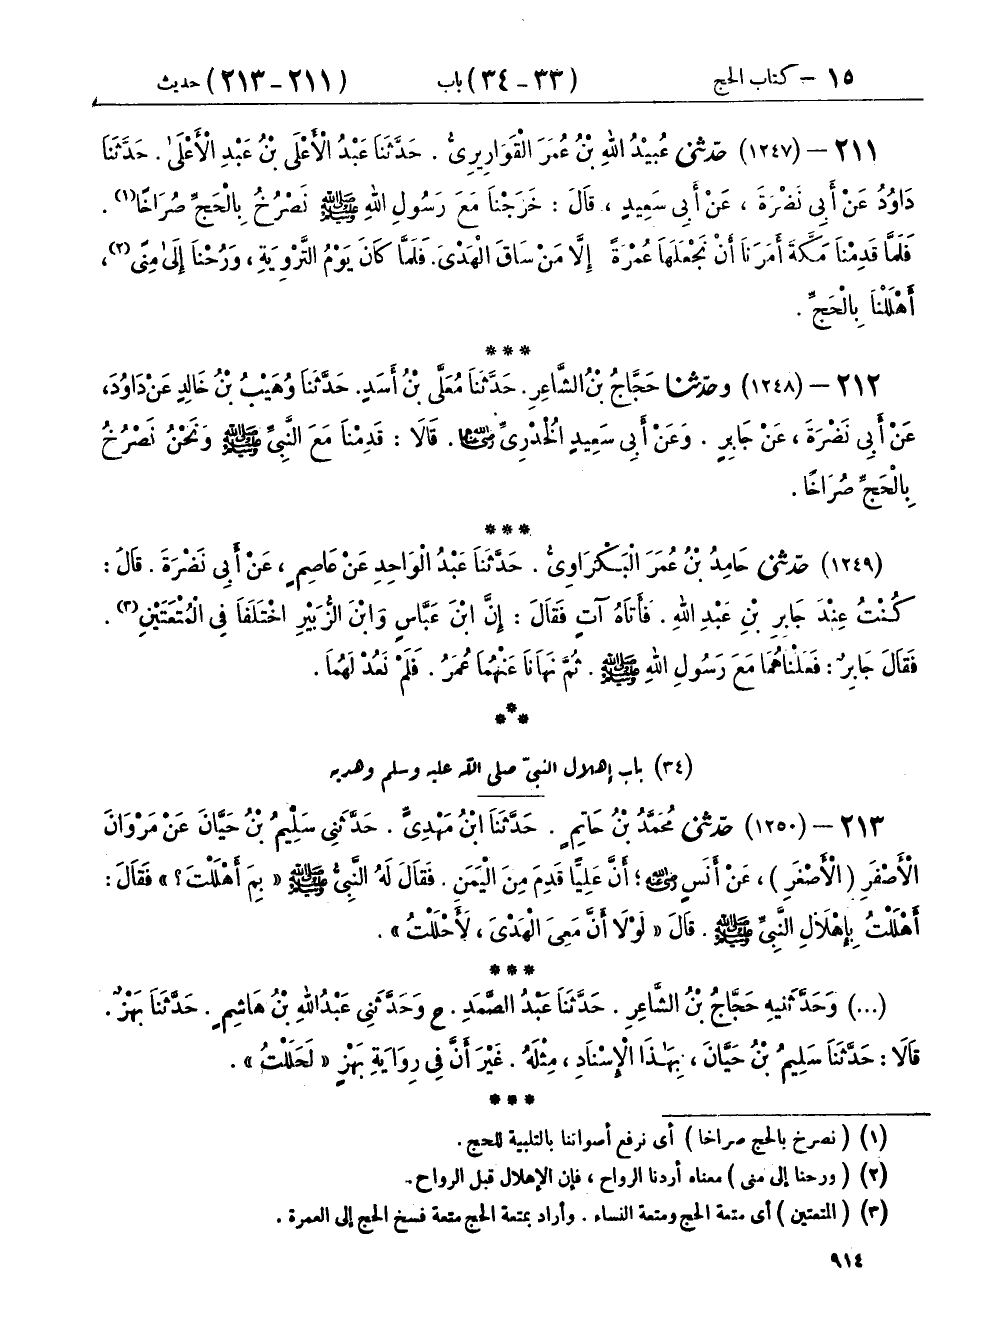 ١٥ – كتاب الحج (٣٣ – ٣٤) باب (٢١١ – ٢١٣) حديث
٢١١ – (١٢٤٧) حَدَّثَنِي عُبَيْدُ اللهِ بْنُ عُمَرَ الْقَوَارِيرِيُّ . حَدَّثَنَا عَبْدُ الْأَعْلَى بْنُ عَبْدِ الْأَعْلَىٰ . حَدَّثَنَا
دَاوُدُ عَنْ أَبِي نَضْرَةَ ، عَنْ أَبِي سَعِيدٍ ، قَالَ : خَرَجْنَا مَعَ رَسُولِ اللهِ ﷺ نَصْرُخُ بِالْحَجِّ صُرَاخًا(١) .
فَلَمَّا قَدِمْنَا مَكَّةَ أَمَرَنَا أَنْ نَجْعَلَهَا عُمْرَةً إِلَّا مَنْ سَاقَ الْهَدْىَ. فَلَمَّا كَانَ يَوْمُ التَّرْوِيَةِ ، وَرُحْنَا إِلَىٰ مِنًى(٢)،
أَهْلَلْنَا بِالْحَجِّ .
***
٢١٢ – (١٢٤٨) وحَدَّثَنَا حَجَّاجُ بْنُ الشَّاعِرِ. حَدَّثَنَا مُعَلَّى بْنُ أَسَدٍ. حَدَّثَنَا وُهَيْبُ بْنُ خَالِدٍ عَنْ دَاوُدَ،
عَنْ أَبِي نَضْرَةَ ، عَنْ جَابِرٍ . وَعَنْ أَبِي سَعِيدٍ الْخُدْرِيِّ رضي الله عنهما . قَالَا : قَدِمْنَا مَعَ النَّبِيِّ ﷺ وَنَحْنُ نَصْرُخُ
بِالْحَجِّ صُرَاخًا .
***
(١٢٤٩) حَدَّثَنِي حَامِدُ بْنُ عُمَرَ الْبَكْرَاوِيُّ . حَدَّثَنَا عَبْدُ الْوَاحِدِ عَنْ عَاصِمٍ ، عَنْ أَبِي نَضْرَةَ . قَالَ :
كُنْتُ عِنْدَ جَابِرِ بْنِ عَبْدِ اللهِ . فَأَتَاهُ آتٍ فَقَالَ : إِنَّ ابْنَ عَبَّاسٍ وَابْنَ الزُّبَيْرِ اخْتَلَفَا فِي الْمُتْعَتَيْنِ(٣) .
فَقَالَ جَابِرٌ : فَعَلْنَاهُمَا مَعَ رَسُولِ اللهِ ﷺ . ثُمَّ نَهَانَا عَنْهُمَا عُمَرُ . فَلَمْ نَعُدْ لَهُمَا .
***
(٣٤) باب إهلال النبيّ صلى الله عليه وسلم وهديه
٢١٣ – (١٢٥٠) حَدَّثَنِي مُحَمَّدُ بْنُ حَاتِمٍ . حَدَّثَنَا ابْنُ مَهْدِيٍّ . حَدَّثَنِي سَلِيمُ بْنُ حَيَّانَ عَنْ مَرْوَانَ
الْأَصْفَرِ ( الْأَصْغَرِ ) ، عَنْ أَنَسٍ رضي الله عنه ؛ أَنَّ عَلِيًّا قَدِمَ مِنَ الْيَمَنِ . فَقَالَ لَهُ النَّبِيُّ ﷺ « بِمَ أَهْلَلْتَ ؟ » فَقَالَ :
أَهْلَلْتُ بِإِهْلَالِ النَّبِيِّ ﷺ . قَالَ « لَوْلَا أَنَّ مَعِيَ الْهَدْىَ ، لَأَحْلَلْتُ » .
***
(...) وَحَدَّثَنِيهِ حَجَّاجُ بْنُ الشَّاعِرِ . حَدَّثَنَا عَبْدُ الصَّمَدِ . ح وَحَدَّثَنِي عَبْدُ اللهِ بْنُ هَاشِمٍ . حَدَّثَنَا بَهْزٌ .
قَالَا : حَدَّثَنَا سَلِيمُ بْنُ حَيَّانَ ، بِهَٰذَا الْإِسْنَادِ ، مِثْلَهُ . غَيْرَ أَنَّ فِي رِوَايَةِ بَهْزٍ « لَحَلَلْتُ » .
***
(١) ( نصرخ بالحج صراخا ) أى نرفع أصواتنا بالتلبية للحج .
(٢) ( ورحنا إلى منى ) معناه أردنا الرواح ، فإن الإهلال قبل الرواح .
(٣) ( المتعتين ) أى متعة الحج ومتعة النساء . وأراد بمتعة الحج متعة فسخ الحج إلى العمرة .
٩١٤